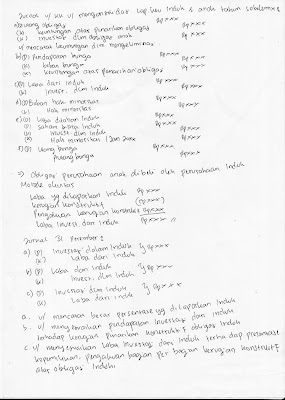 Jurnal u/ KK u/ mengkonsolidasi lap. keu Induk & anak tahun sebelumnya
a) utang obligasi Rp xxx
(k) keuntungan atas penarikan obligasi Rp xxx
(k) Investasi dlm obligasi anak Rp xxx
u/ mencatat keuntungan dlm mengeliminasi
b) (D) Pendapatan bunga Rp xxx
(k) beban bunga Rp xxx
(k) keuntungan atas penarikan obligasi Rp xxx
c) (D) Laba dari Induk Rp xxx
(k) Invest. dlm Induk Rp xxx
d) (D) Beban hak minoritas Rp xxx
(k) Hak minoritas Rp xxx
e) (D) Laba ditahan Induk Rp xxx
(D) saham biasa Induk Rp xxx
(k) Invest dlm Induk Rp xxx
(k) Hak minoritas 1 Jan 20xx Rp xxx
f) (D) Utang bunga Rp xxx
piutang bunga Rp xxx
=> Obligasi perusahaan anak dibeli oleh perusahaan Induk
Metode ekuitas
Laba yg dilaporkan Induk Rp xxx
kerugian konstruktif (Rp xxx)
Pengakuan kerugian konstruktif Rp xxx
Laba Invest. dari Induk Rp xxx //
Jurnal 31 Desember :
a) (D) Investasi dalam Induk Rp xxx
(k) Laba dari Induk Rp xxx
b) (D) Laba dari Induk Rp xxx
(k) Invest. dlm Induk Rp xxx
c) (D) Investasi dlm Induk Rp xxx
(k) Laba dari Induk Rp xxx
a. u/ mencatat besar persentase yg dilaporkan Induk
b. u/ menyesuaikan pendapatan Investasi dari Induk
terhadap kerugian penarikan konstruktif obligasi Induk
c. u/ menyesuaikan laba Investasi dari Induk terhadap persentase
kepemilikan, pengakuan bagian per bagian kerugian konstruktif
atas obligasi Induk